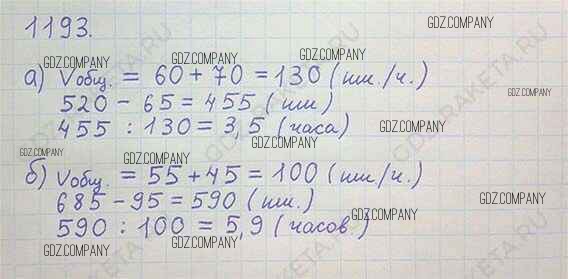 1193.
а) Vобщ. = 60 + 70 = 130 (км./ч.)
520 - 65 = 455 (км)
455 : 130 = 3,5 (часа)
б) Vобщ. = 55 + 45 = 100 (км./ч.)
685 - 95 = 590 (км.)
590 : 100 = 5,9 (часов.)
GDZ.COMPANY
GDZ.COMPANY
GDZ.COMPANY
GDZ.COMPANY
GDZ.COMPANY
GDZ.COMPANY
GDZ.COMPANY
GDZ.COMPANY
GDZ.COMPANY
GDZ.COMPANY
GDZ.COMPANY
GDZ.COMPANY
GDZ.COMPANY